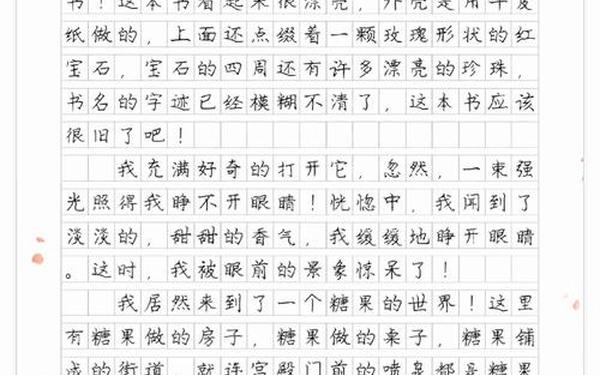 书！这本书看起来很漂亮，外壳是用牛皮
纸做的，上面还点缀着一颗玫瑰形状的红
宝石，宝石的四周还有许多漂亮的珍珠，
书名的字迹已经模糊不清了，这本书应该
很旧了吧！
我充满好奇的打开它，忽然，一束强
光照得我睁不开眼睛！恍惚中，我闻到了
淡淡的，甜甜的香气，我缓缓地睁开眼睛
。这时，我被眼前的景象惊呆了！
我居然来到了一个糖果的世界！这里
有糖果做的房子，糖果做的桌子，糖果铺
成的街道，就连宫殿门前的喷泉都是糖果